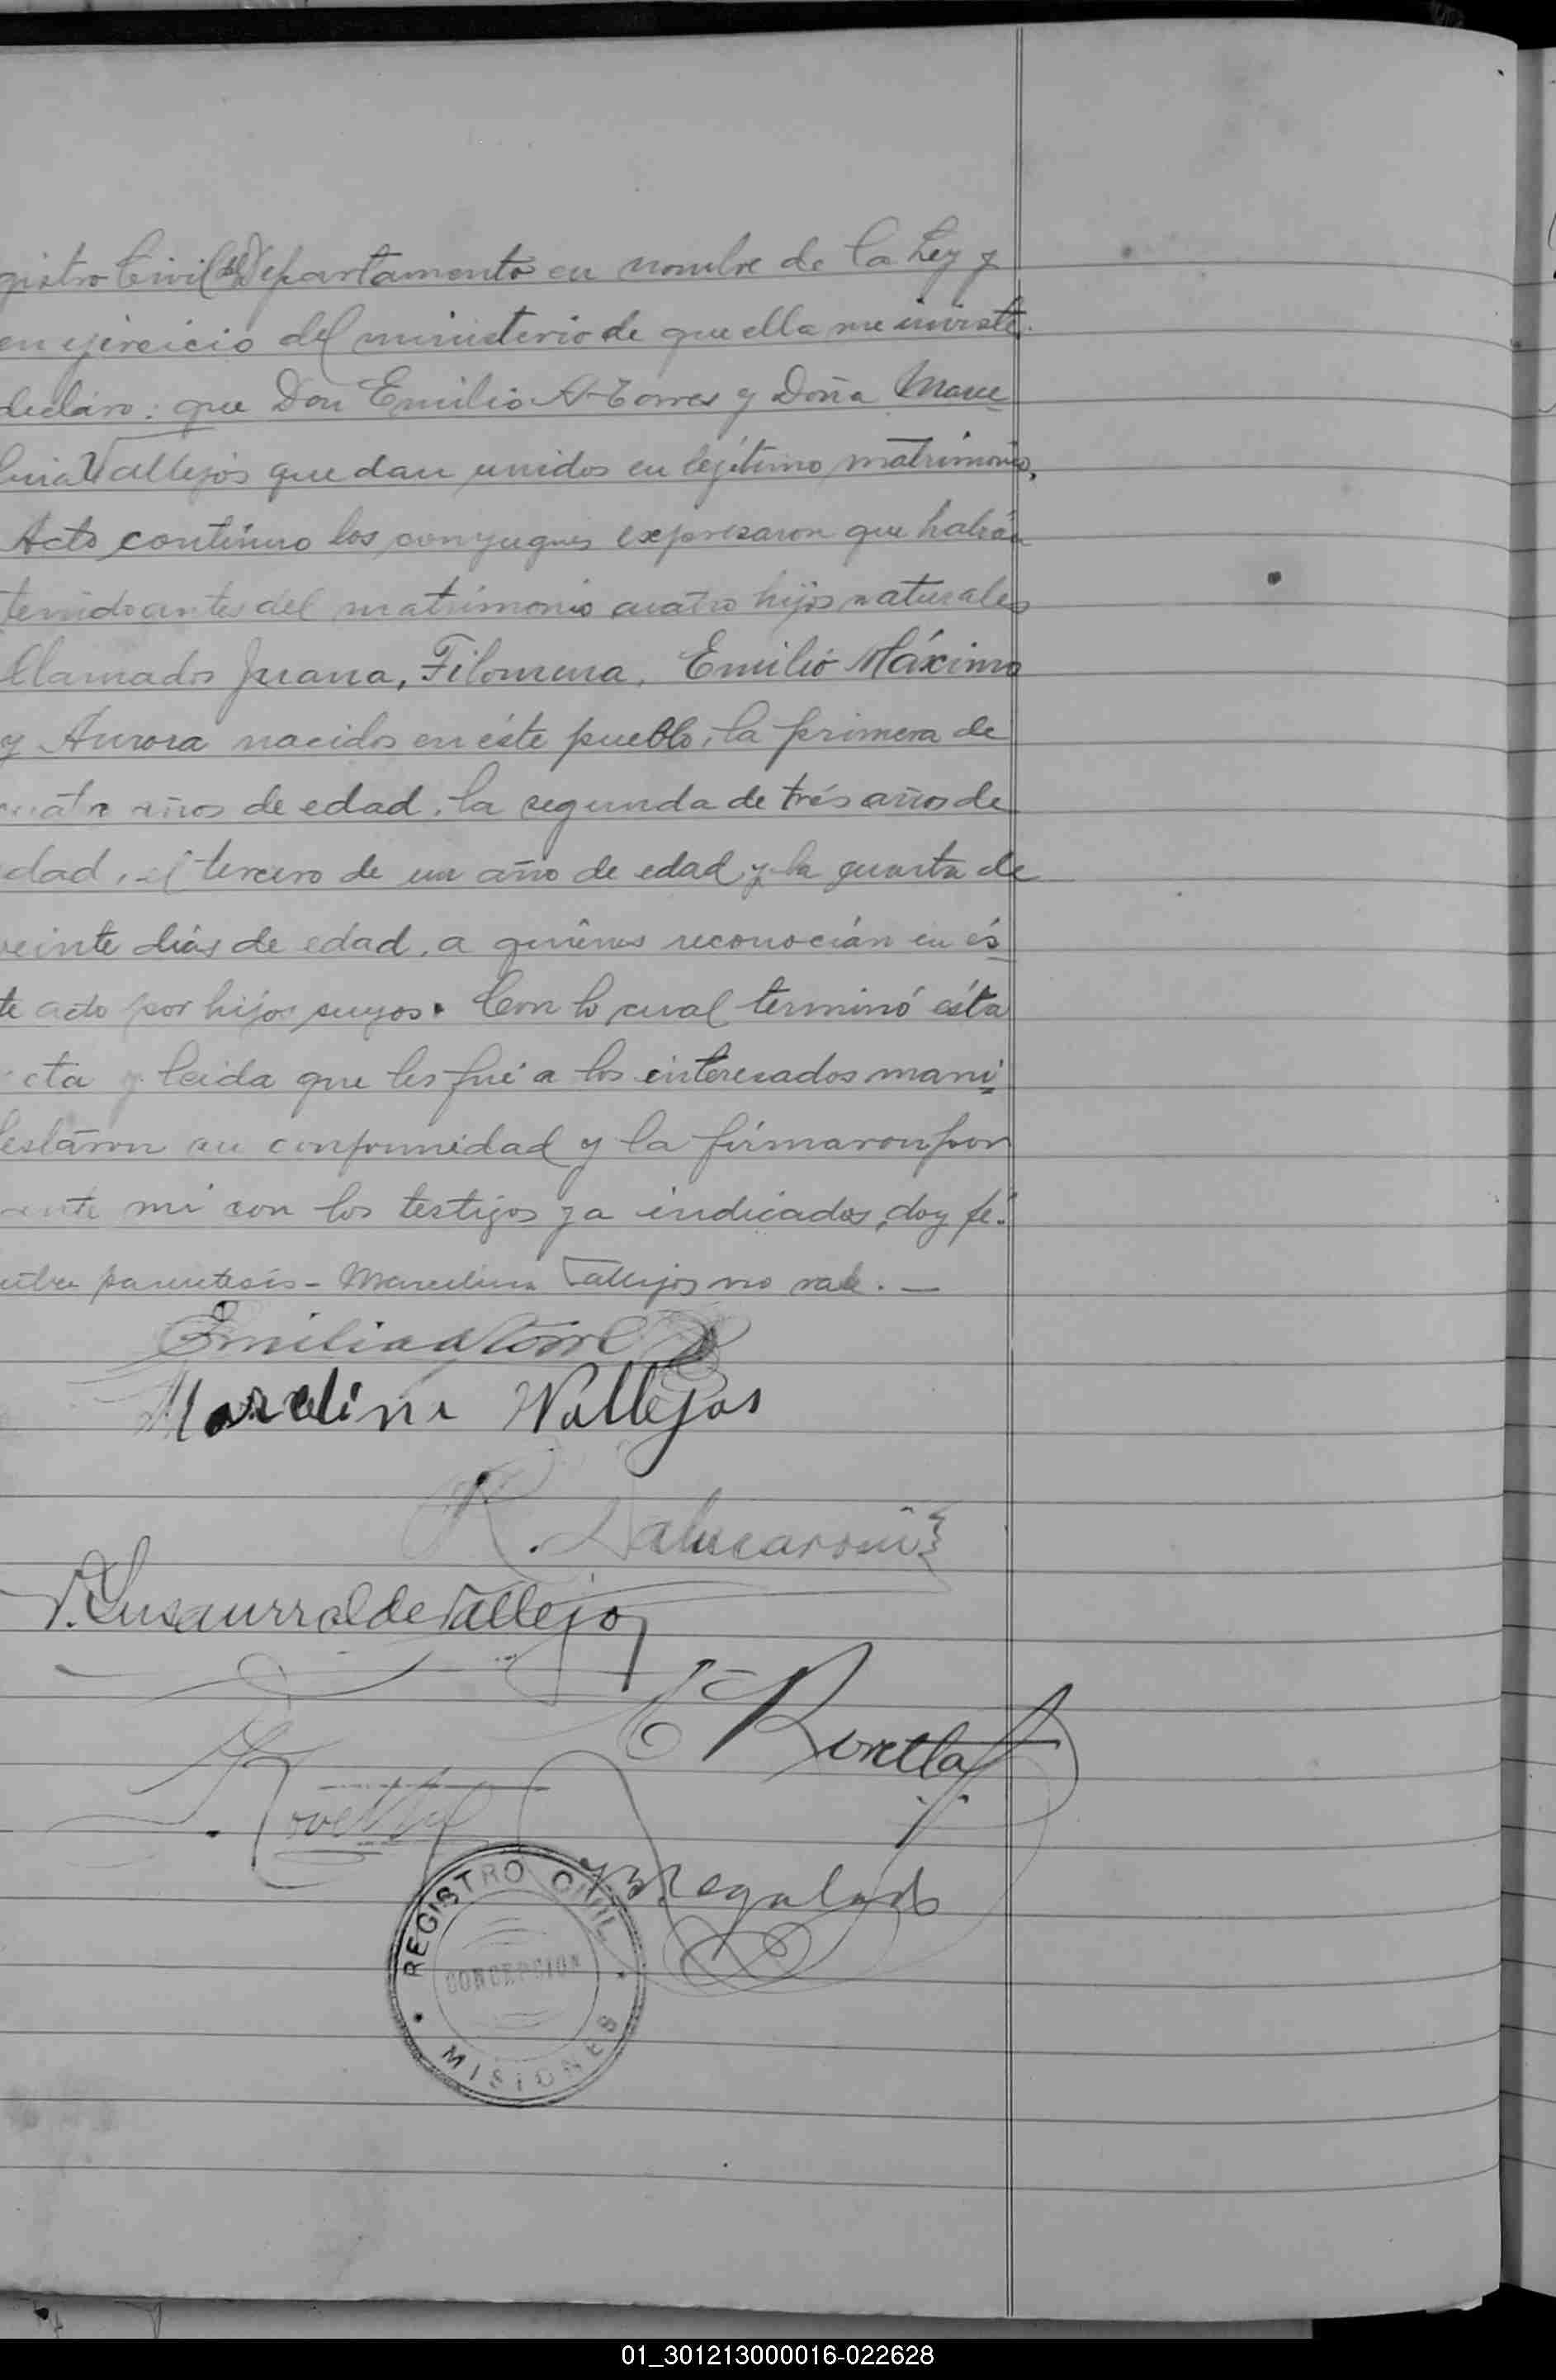 gistro Civil del Departamento en nombre de la Ley y
en ejercicio del ministerio de que ella me inviste,
declaro: que Don Emilio A. Torres y Doña Marce
lina Vallejos quedan unidos en legítimo matrimonio.
Acto contínuo los conyugues expresaron que habián
tenido antes del matrimonio cuatro hijos naturales
llamados Juana, Filomena, Emilio Máximo
y Aurora nacidos en éste pueblo, la primera de
cuatro años de edad, la segunda de trés años de
dad, el tercero de un año de edad y la cuarta de
veinte diás de edad, a quiénes reconocián en és
te acto por hijos suyos. Con lo cual terminó ésta
cta y leida que les fué a los interesados mani
festáron su conformidad y la firmaron por
ante mi con los testigos ya indicados, doy fé.
entre parentesis - Marcelina Vallejos no vale. —
Emilio A Torres
Marcelina Vallejos
R.
Lusaurralde Vallejos
Rovetta
Rovetta
Regalado
REGISTRO CIVIL
CONCEPCION
MISIONES
01_301213000016-022628